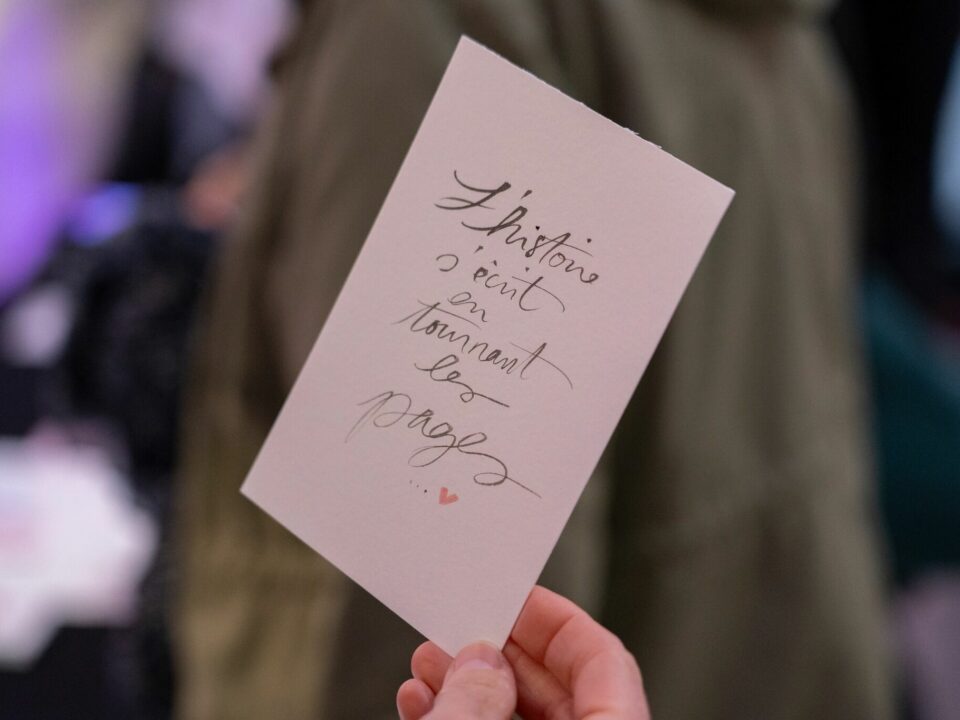 L'histoire
s'écrit
en
tournant
les
pages
...